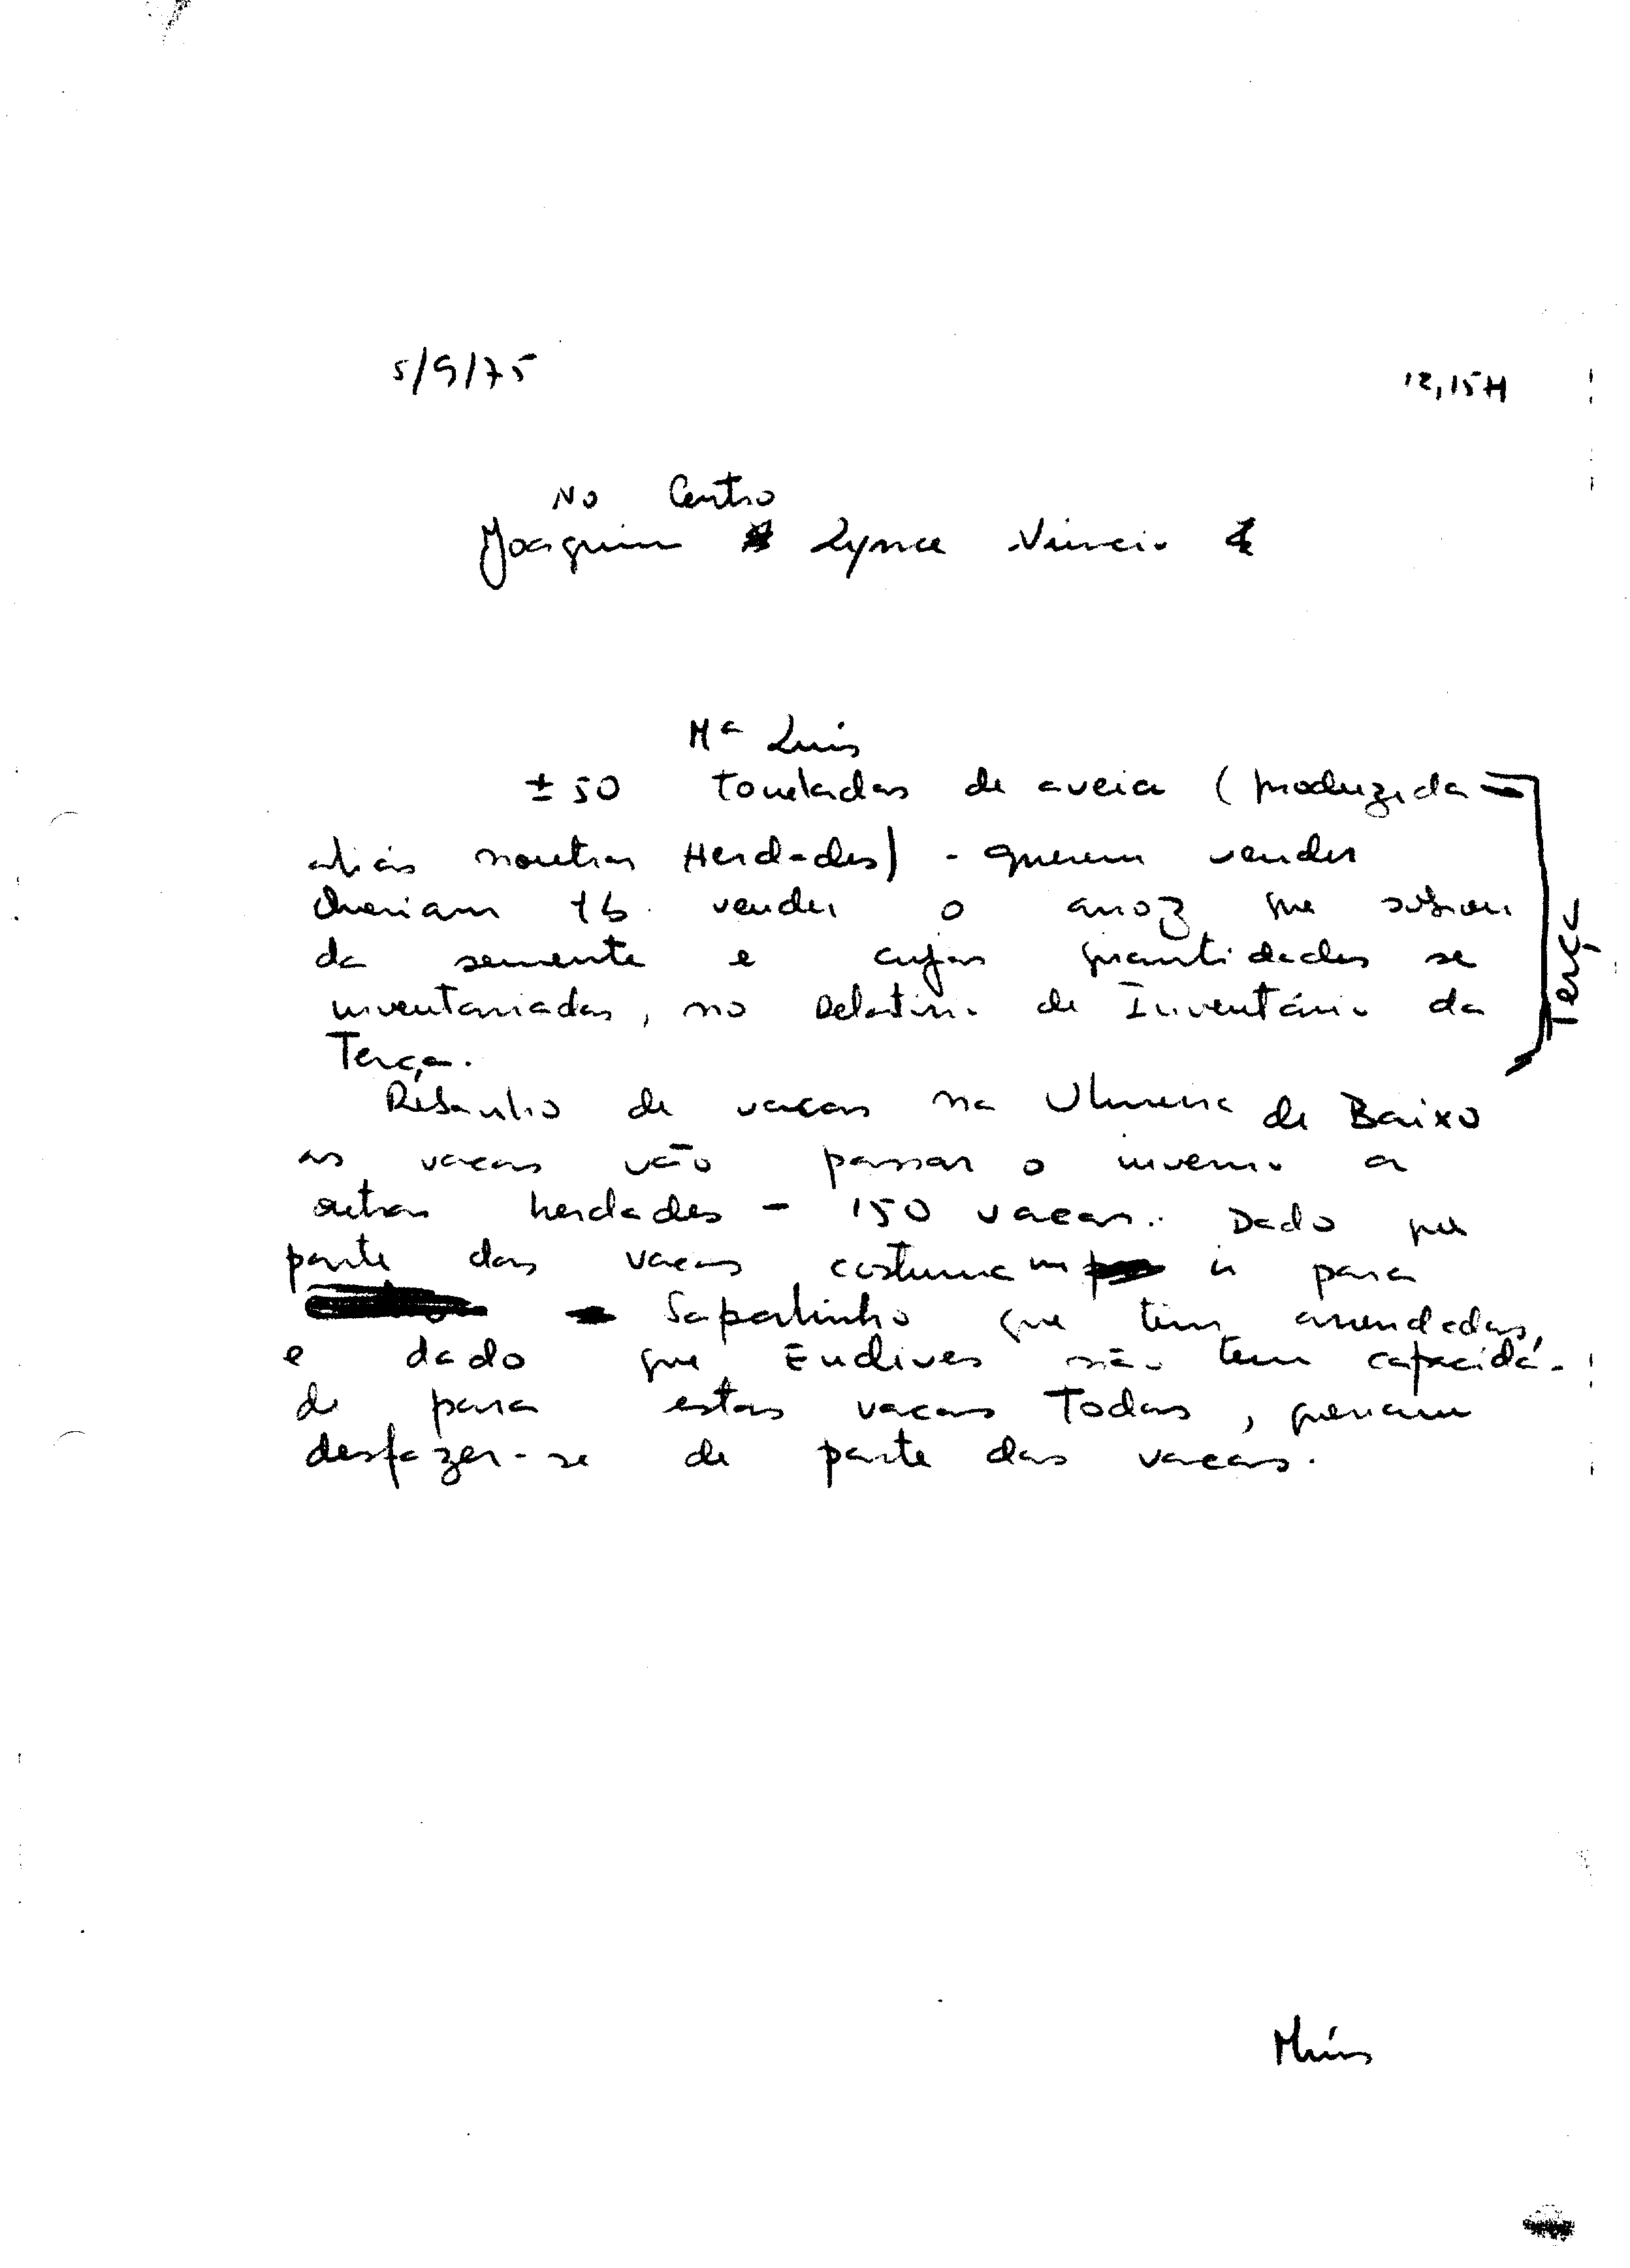 5/9/75
12,15H
No Centro
Joaquim Lynce
Mª Luís
± 50 toneladas de aveia (produzida
aliás noutras Herdades) - querem vender
Queriam tb. vender o arroz que sobrou
da semente e cujas quantidades se
inventariadas, no Relatório de Inventário da
Terça.
Terça
Rebanho de vacas na de Baixo
as vacas vão passar o inverno a
outras herdades - 150 vacas. Dado que
parte das vacas costumam ir para
Sapalinho que têm arrendadas,
e dado que Endives não tem capacida-
de para estas vacas Todas, queriam
desfazer-se de parte das vacas.